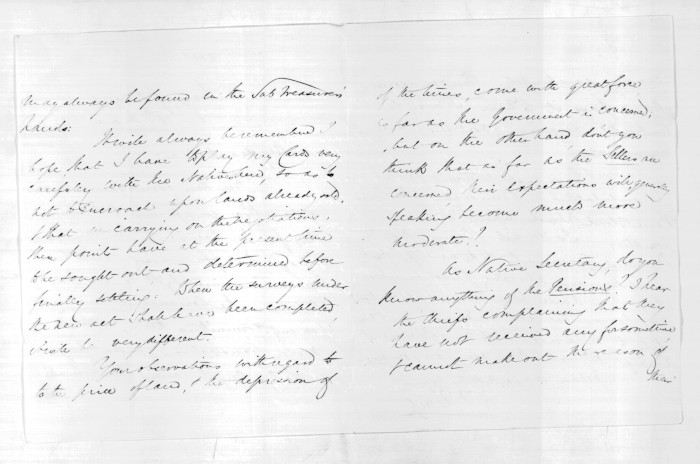 may always be found in the Sub Treasurers'
hands:
It will always be remembered I
hope that I have to play my Cards very
carefully with the Natives here, so as to
not to encroach upon lands already sold,
& that in carrying on these stations,
these points have at the present time
to be sought out and determined before
finally settling: When the surveys under
the new act shall have been completed,
it will be very different.
Your observations with regard to
to the price of land, & the depression of
of the times, come with great force
as far as the Government is concerned,
but on the other hand, don't you
think that as far as the Settlers are
concerned, their expectations will generally
speaking become much more
moderate?
As Native Secretary, do you
know anything of the Pensions? I hear
the Chiefs complaining that they
have not received any for sometime
& cannot make out the reason of
their